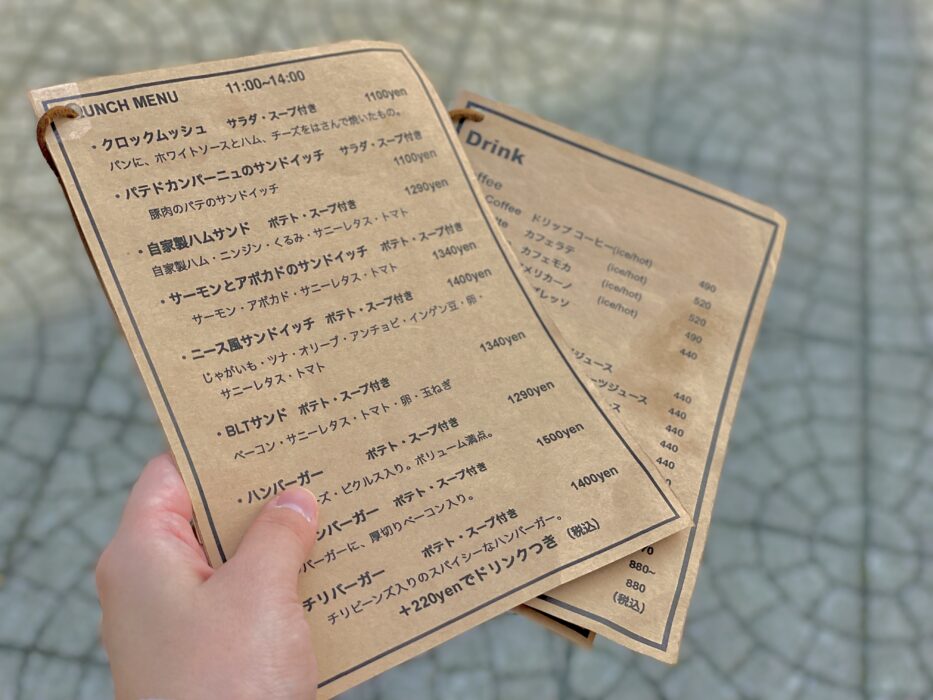 UNCH MENU 11:00~14:00
・クロックムッシュ サラダ・スープ付き 1100yen
パンに、ホワイトソースとハム、チーズをはさんで焼いたもの。
・パテドカンパーニュのサンドイッチ サラダ・スープ付き
豚肉のパテのサンドイッチ 1100yen
・自家製ハムサンド ポテト・スープ付き 1290yen
自家製ハム・ニンジン・くるみ・サニーレタス・トマト
・サーモンとアボカドのサンドイッチ ポテト・スープ付き
サーモン・アボカド・サニーレタス・トマト 1340yen
・ニース風サンドイッチ ポテト・スープ付き 1400yen
じゃがいも・ツナ・オリーブ・アンチョビ・インゲン豆・卵・
サニーレタス・トマト
・BLTサンド ポテト・スープ付き 1340yen
ベーコン・サニーレタス・トマト・卵・玉ねぎ
・ハンバーガー ポテト・スープ付き 1290yen
ズ・ピクルス入り。ボリューム満点。
ンバーガー ポテト・スープ付き 1500yen
バーガーに、厚切りベーコン入り。
チリバーガー ポテト・スープ付き 1400yen
チリビーンズ入りのスパイシーなハンバーガー。
+220yenでドリンクつき (税込)
Drink
ffee
Coffee ドリップコーヒー(ice/hot) 490
te カフェラテ (ice/hot) 520
カフェモカ (ice/hot) 520
メリカーノ (ice/hot) 490
プレッソ 440
ジュース 440
ーツジュース 440
ース 440
440
440
70
880~
880
(税込)